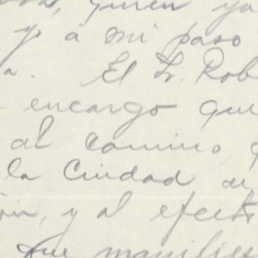 quien ya
y à mi paso
a. El Sr. Rob
encargo que
al camino,
la Ciudad de
ión, y al efect
que manifies